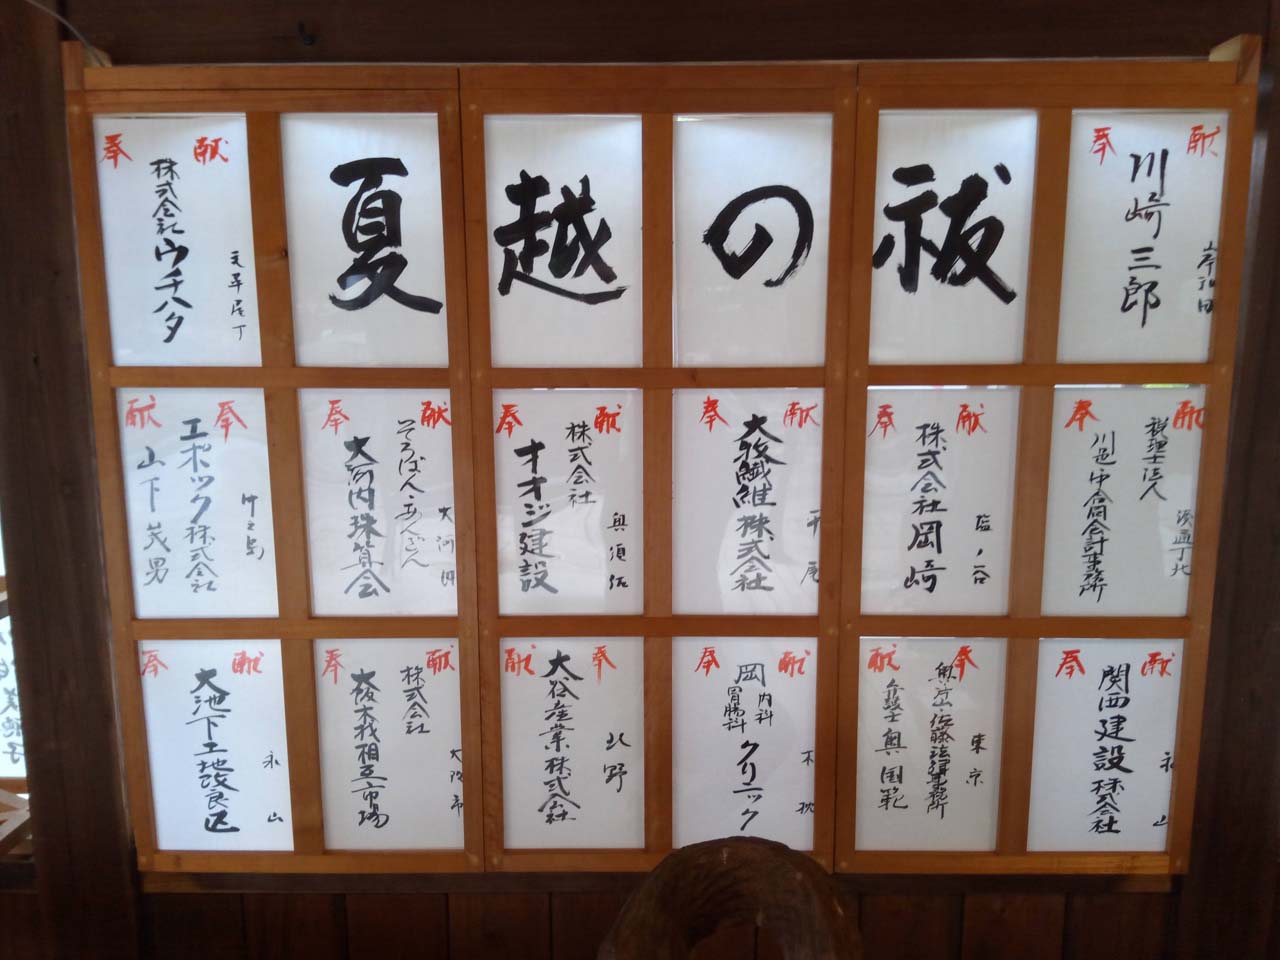 奉献
株式会社ウチハタ
夏越の祓
奉献
岸和田
川崎三郎
奉献
エポック株式会社
山下茂男
奉献
大河内
そろばん・あんざん
大河内珠算会
奉献
株式会社
オオジ建設
奉献
大牧繊維株式会社
奉献
塩ノ谷
株式会社岡崎
奉献
税理士法人
川邉中倉合同会計事務所
奉献
永山
大池下土地改良区
奉献
大阪市
株式会社
大阪木材相互市場
奉献
北野
大谷産業株式会社
奉献
岡
内科
胃腸科
クリニック
奉献
東京
奥・片山・佐藤法律事務所
弁護士 奥国範
奉献
関西建設株式会社